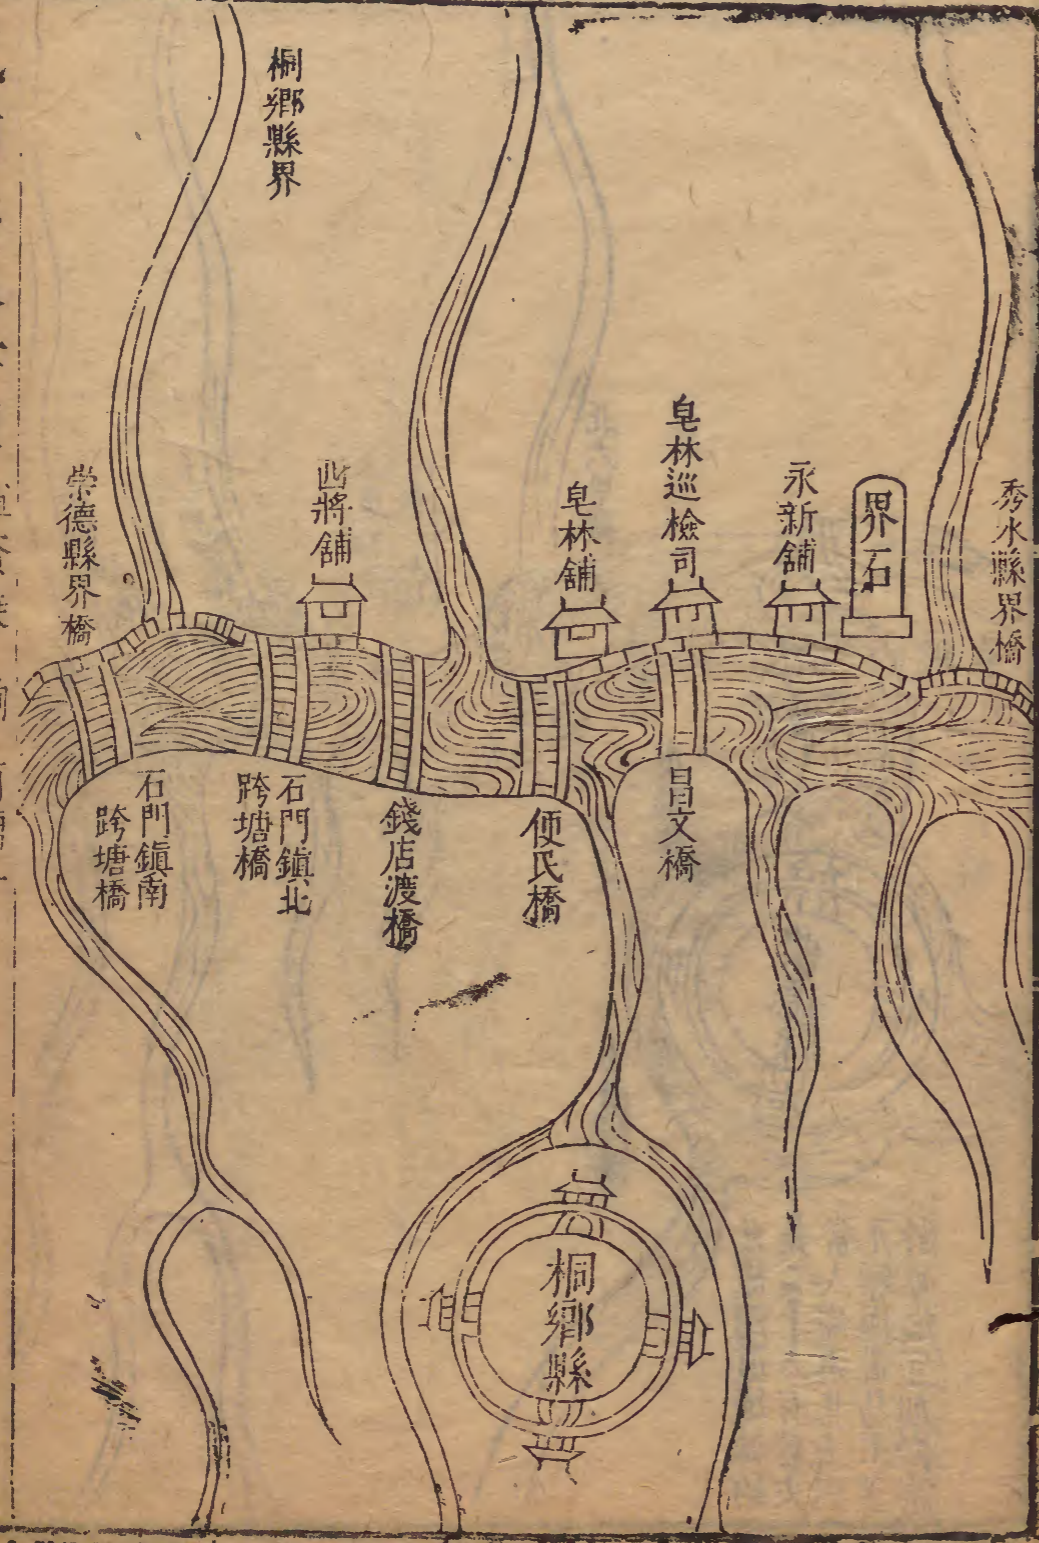 秀水縣界橋
界石
永新舖
皂林巡檢司
皂林舖
桐鄉縣界
崇德縣界橋
昌文橋
便民橋
錢店渡橋
石門鎮北
跨塘橋
石門鎮南
跨塘橋
桐鄉縣